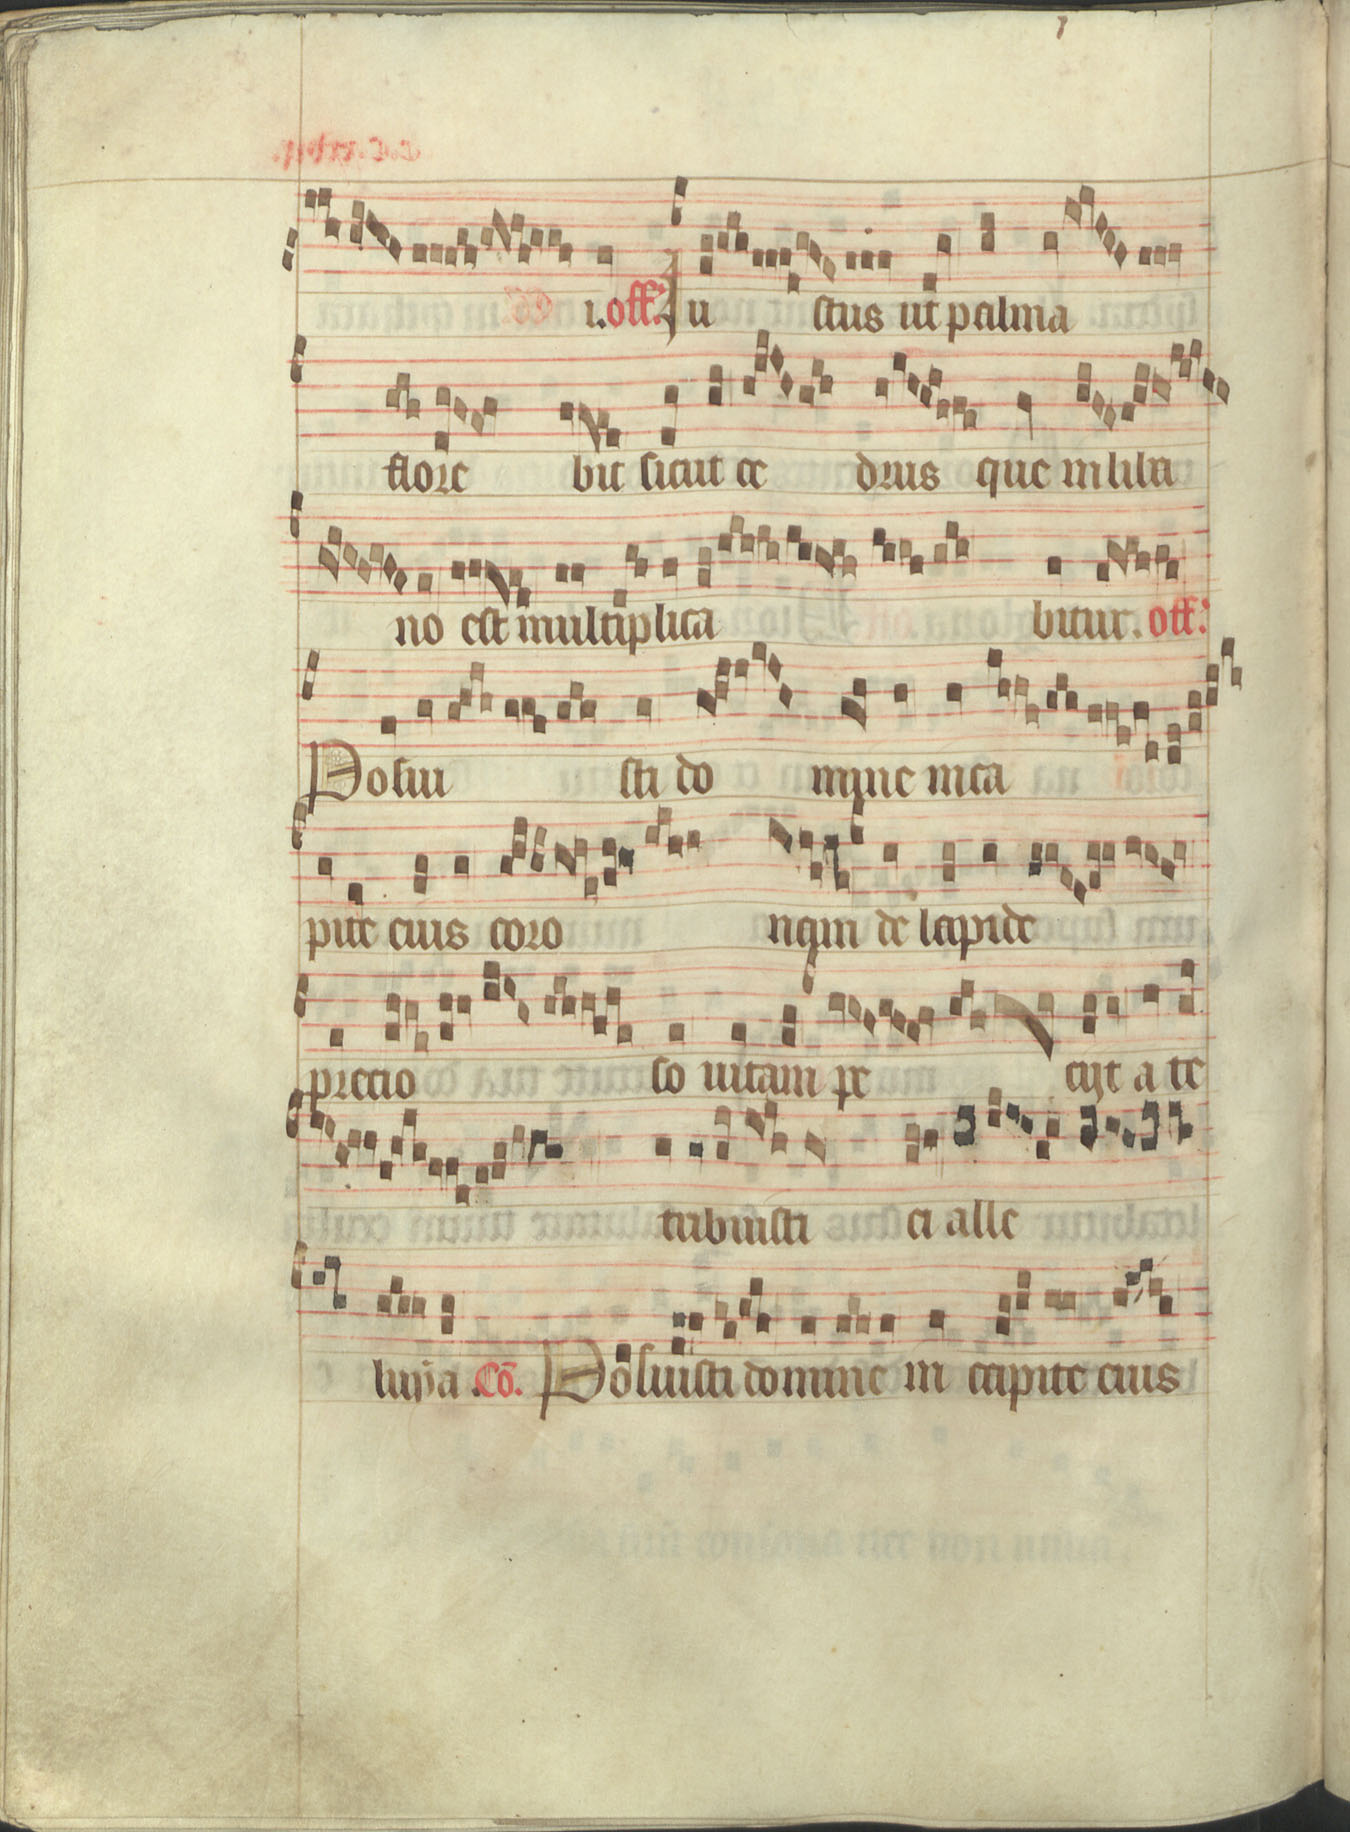 i. off. Iu stus ut palma
flore bit sicut ce drus que in liba
no est multiplica bitur. off.
Posui sti do mine in ca
pite eius coro nam de lapide
precio so uitam pe cijt a te
tribuisti ei alle
luya .Co. Posuisti domine in capite eius